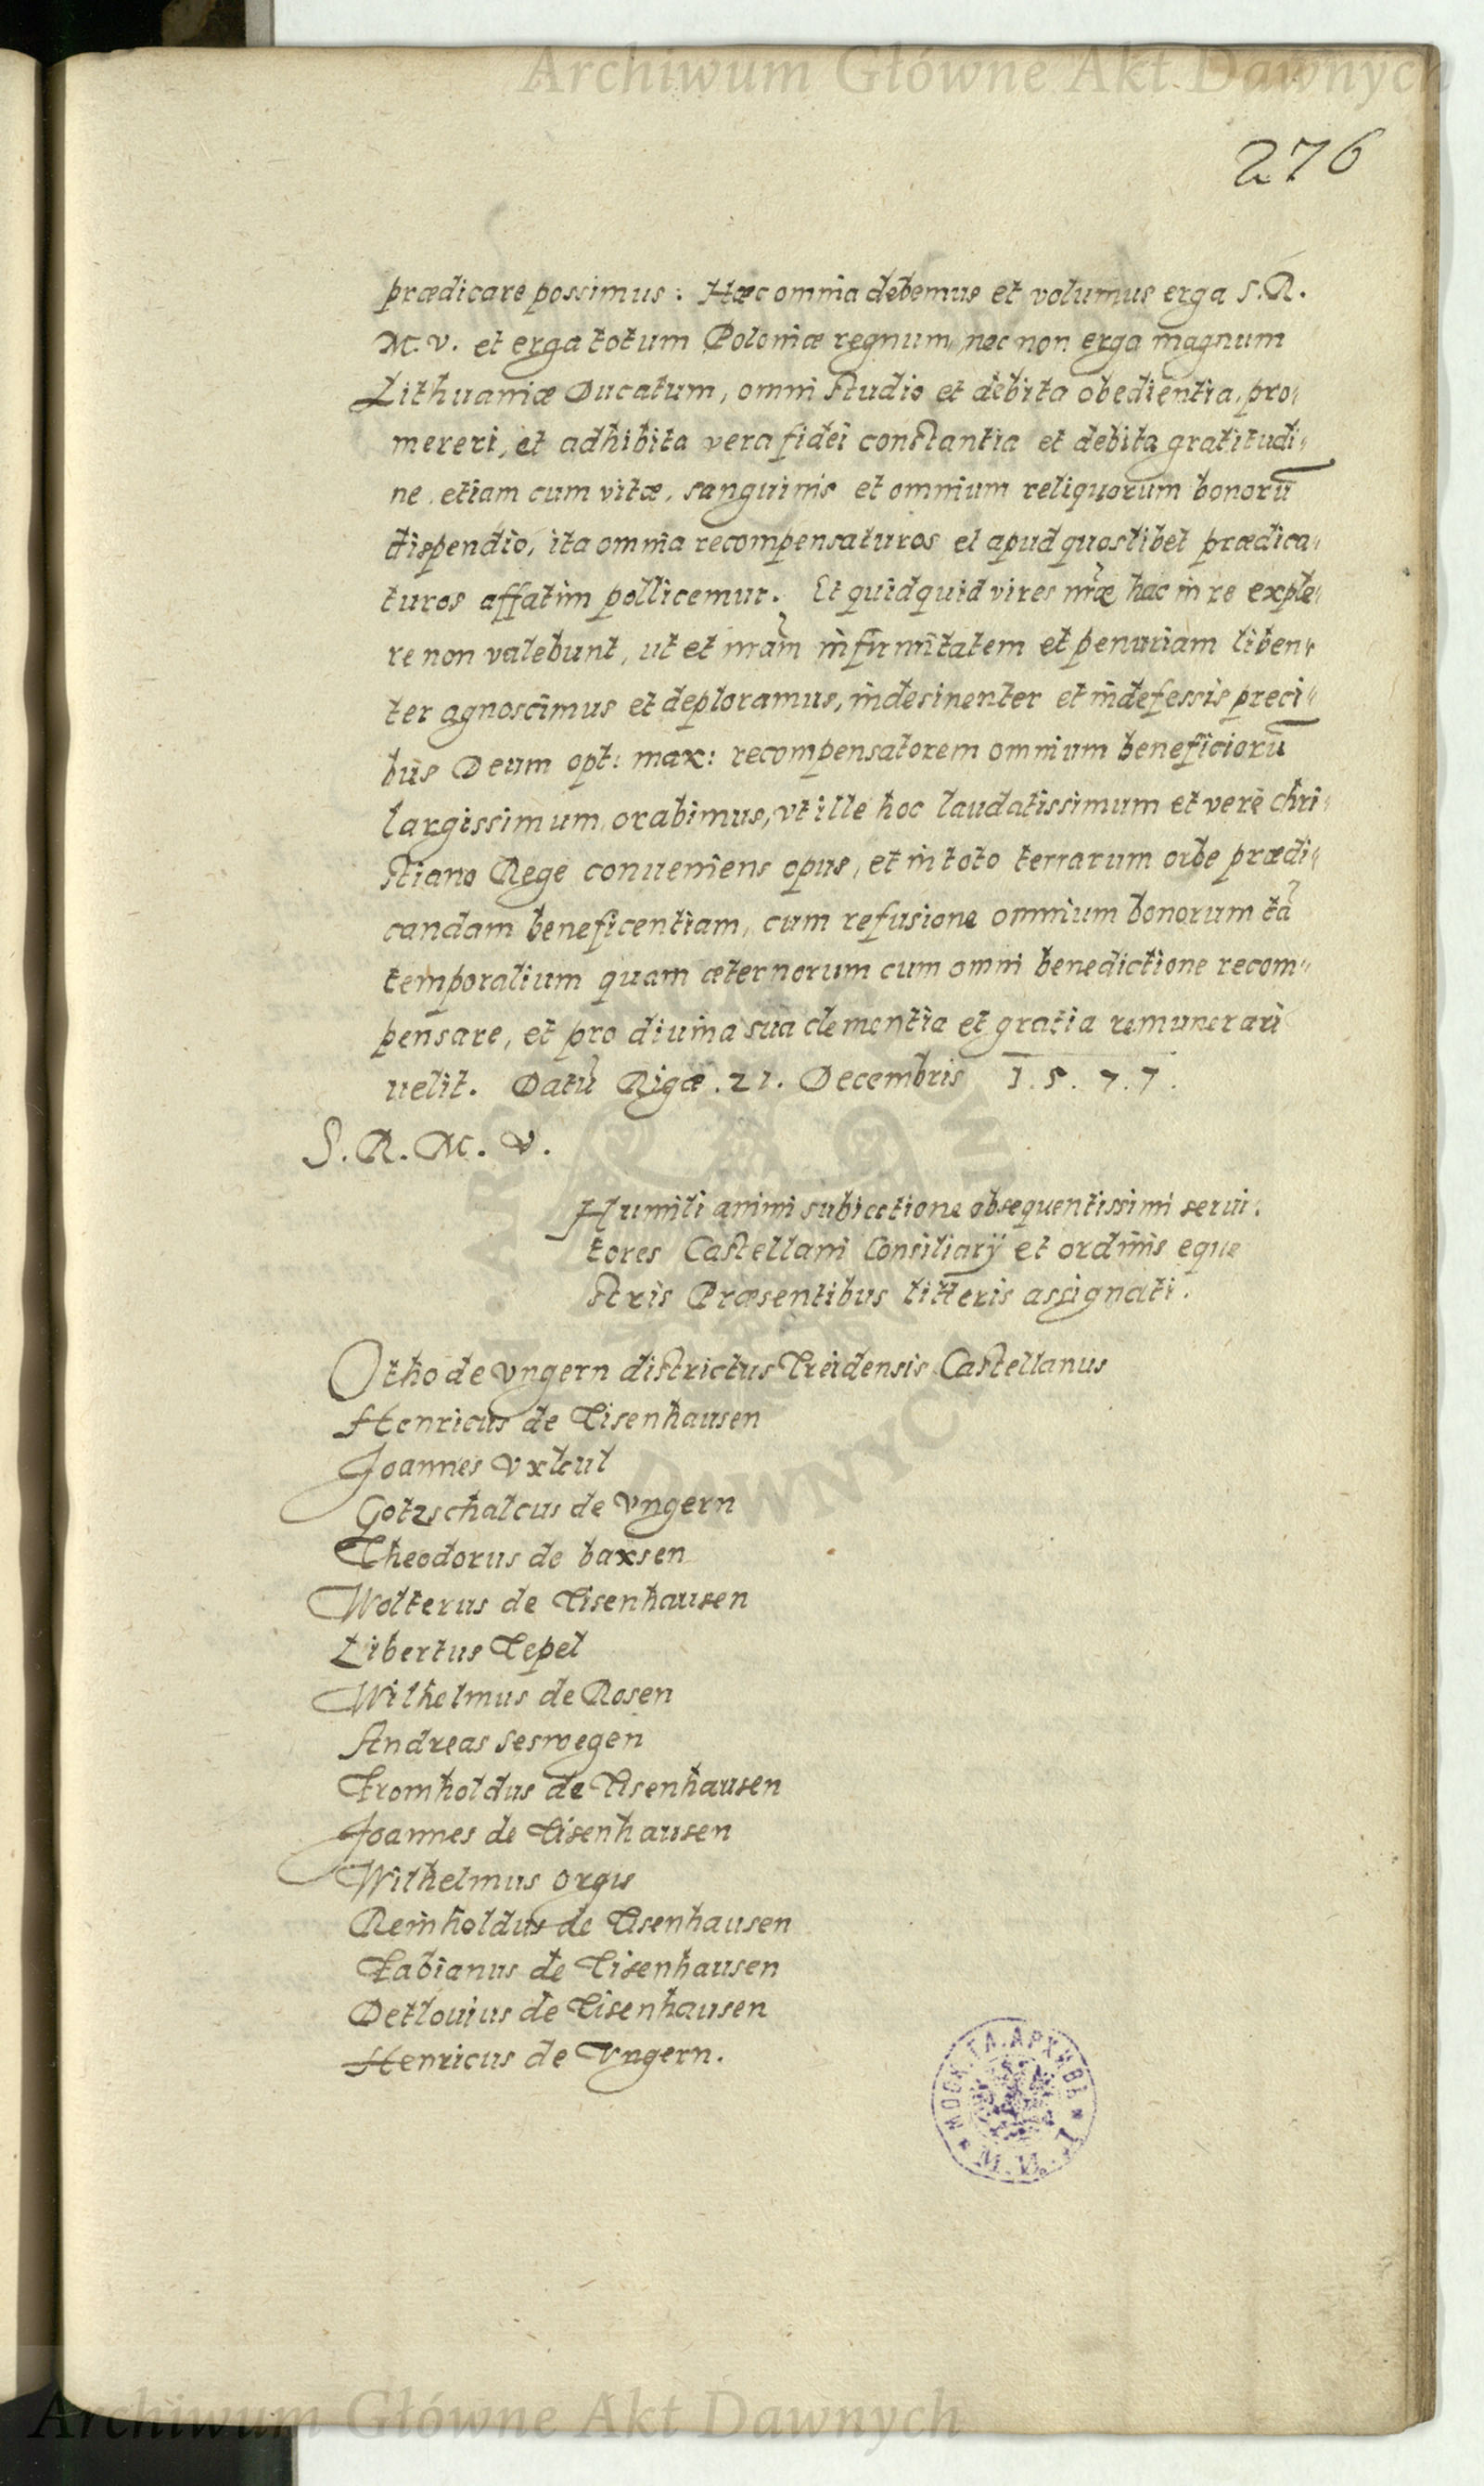 Archiwum Główne Akt Dawnych
276
prædicare possimus: Hæc omnia debemus et volumus erga S.R.
M.V. et erga totum Poloniæ regnum, nec non erga magnum
Lithuaniæ Ducatum, omni studio et debita obedientia, pro-
mereri, et adhibita vera fidei constantia et debita gratitudi-
ne, etiam cum vitæ, sanguinis et omnium reliquorum bonorū
dispendio, ita omnia recompensaturos et apud quoslibet prædica-
turos affatim pollicemur. Et quidquid vires nr̃æ hac in re exple-
re non valebunt, ut et nr̃am infirmitatem et penuriam liben-
ter agnoscimus et deploramus, indesinenter et indefessis preci-
bus Deum opt: max: recompensatorem omnium beneficiorū
largissimum, orabimus, vt ille hoc laudatissimum et verè chri-
stiano Rege conueniens opus, et in toto terrarum orbe prædi-
candam beneficentiam, cum refusione omnium bonorum tā
temporalium quam æternorum cum omni benedictione recom-
pensare, et pro diuina sua clementia et gratia remunerari
uelit. Datū Rigæ .21. Decembris 1.5.7.7.
S.R.M.V.
Humili animi subiectione obsequentissimi serui-
tores Castellani Consiliarij et ordinis eque
stris Præsentibus litteris assignati.
Otho de Vngern districtus Treidensis Castellanus
Henricus de Tisenhausen
Joannes Vxkul
Gotzschalcus de Vngern
Theodorus de baxsen
Wolterus de Tisenhausen
Libertus Tepel
Wilhelmus de Rosen
Andreas Seswegen
Fromholdus de Tisenhausen
Joannes de Tisenhausen
Wilhelmus Orgis
Reinholdus de Tisenhausen
Fabianus de Tisenhausen
Detlouius de Tisenhausen
Henricus de Vngern.
МОСК. ГЛ. АРХИВЪ
М. И. Д.
Archiwum Główne Akt Dawnych